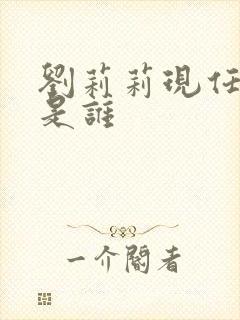 劉莉莉現任
是誰
一介閣者